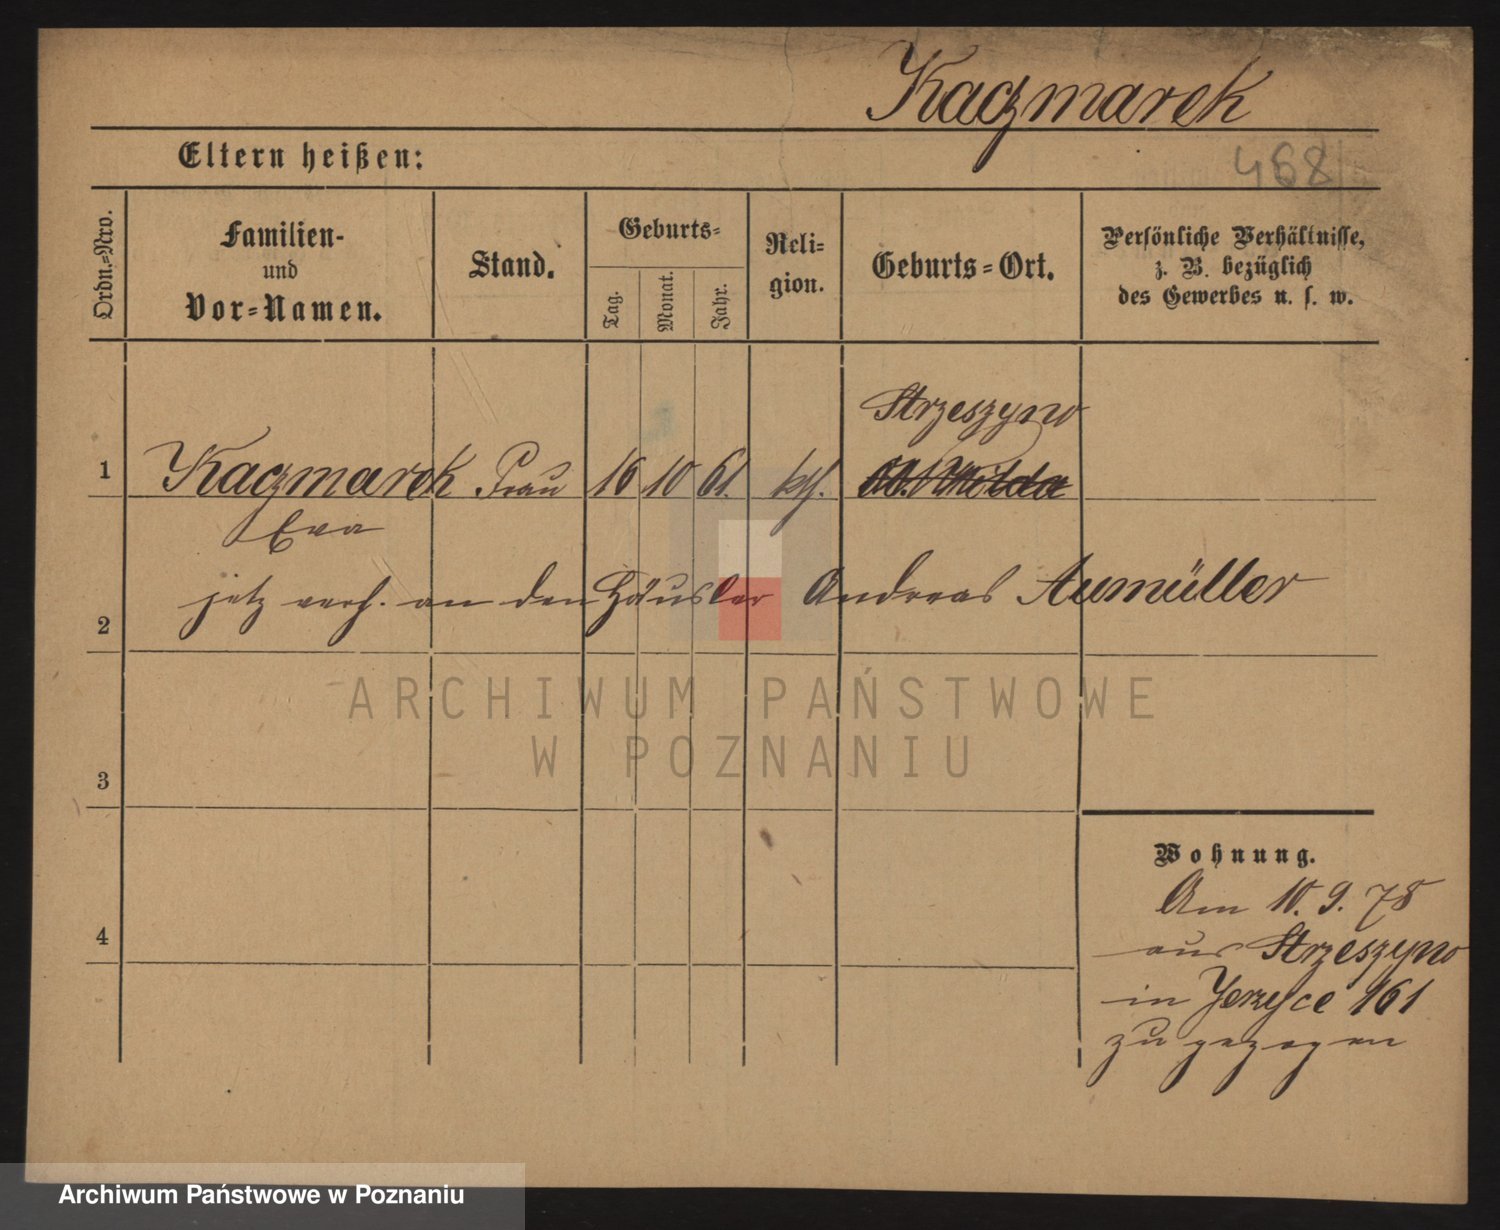 Kaczmarek
Eltern heißen:
468
Ordn.=Nro.
Familien-
und
Vor=Namen.
Stand.
Geburts=
Tag.
Monat.
Jahr.
Reli=
gion.
Geburts=Ort.
Persönliche Verhältnisse,
z. B. bezüglich
des Gewerbes u. s. w.
Strzeszyno
1 Kaczmarek Frau 16 10 61. kth. Wilda
Eva
2 jetz verh. an den Häusler Andreas Aumüller
ARCHIWUM PAŃSTWOWE
W POZNANIU
3
Wohnung.
Am 10. 9. 78
4
aus Strzeszyno
in Jerzyce 161
zu gezogen
Archiwum Państwowe w Poznaniu